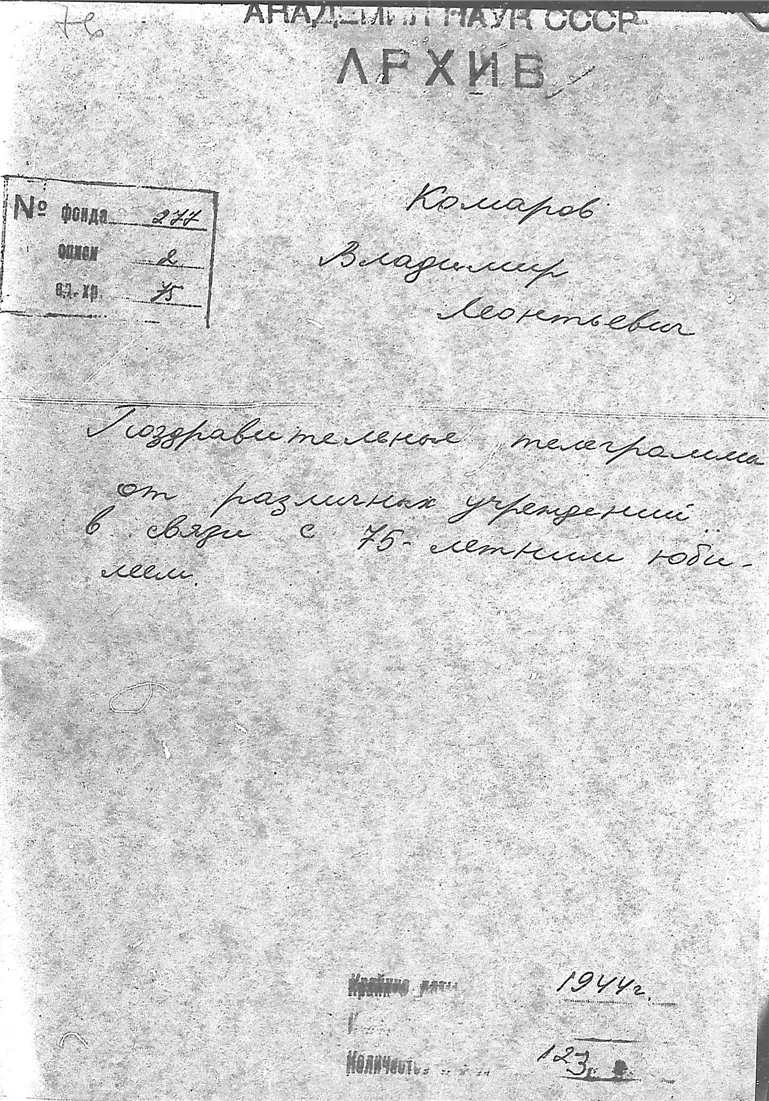 АКАДЕМИЯ НАУК СССР
АРХИВ
№ фонда 277
описи 2
ед. хр. 75
Комаров
Владимир
Леонтьевич
Поздравительные телеграммы
от различных учреждений
в связи с 75-летним юби-
леем.
Крайние даты 1944 г.
Количество 123